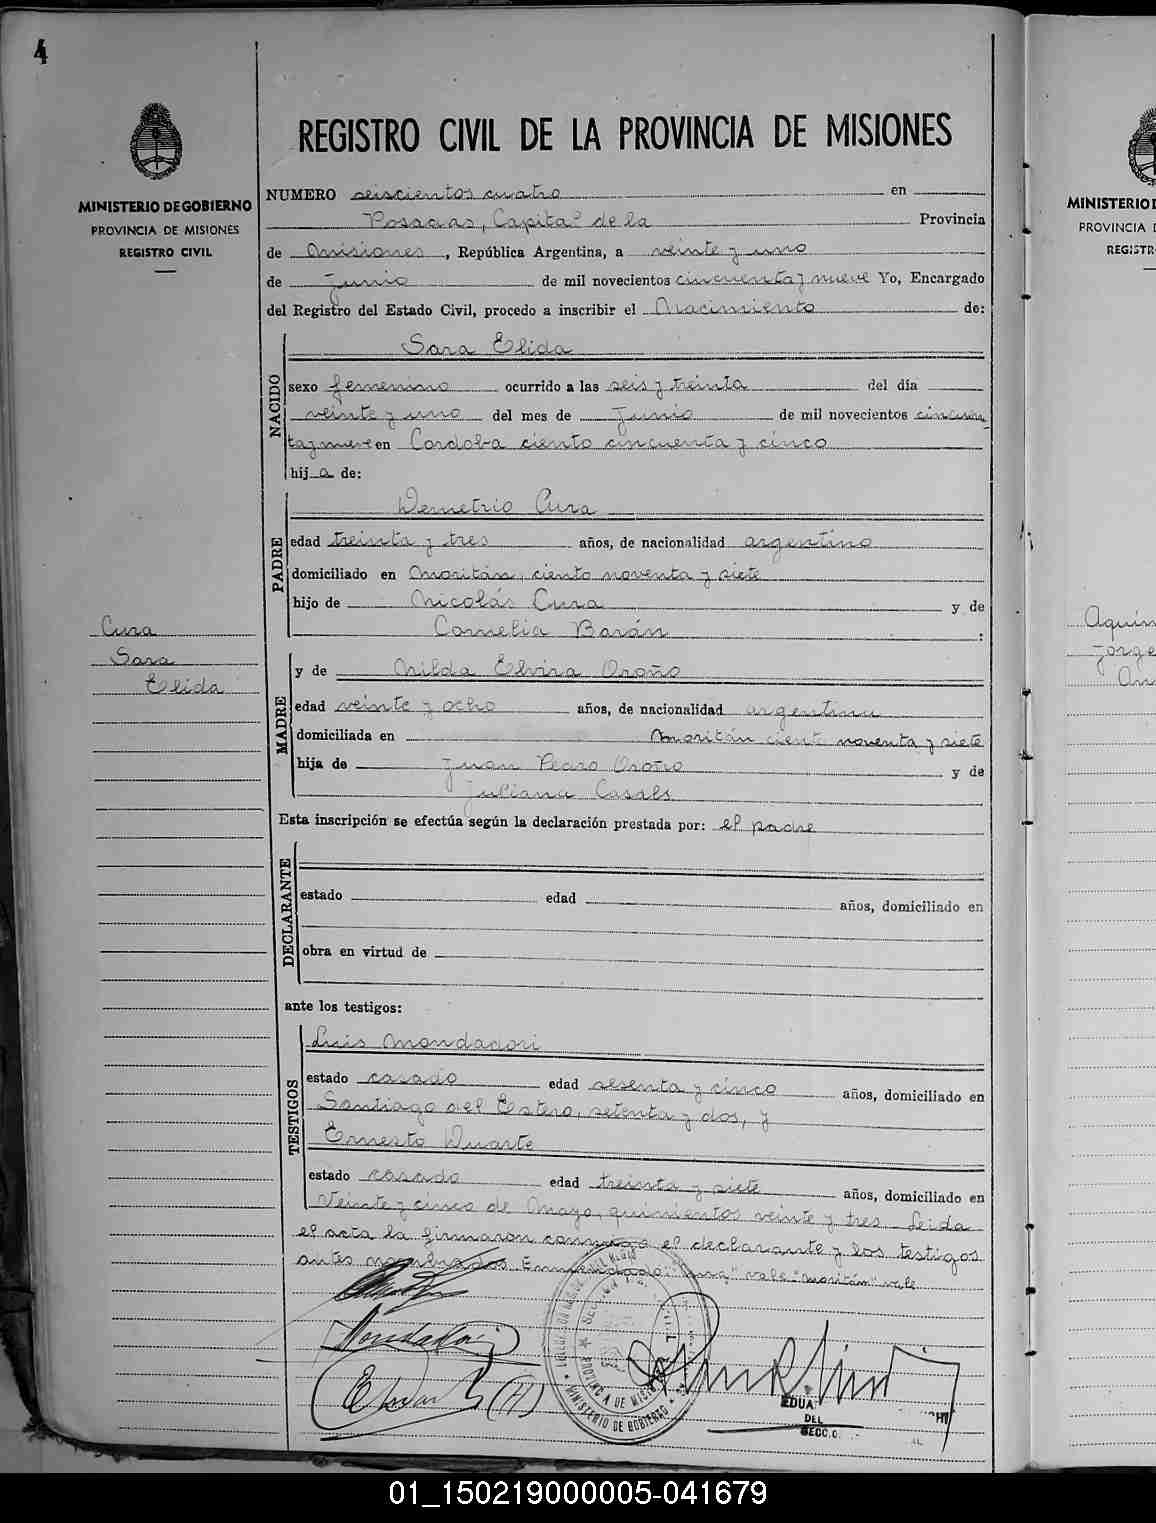 4
MINISTERIO DE GOBIERNO
PROVINCIA DE MISIONES
REGISTRO CIVIL
REGISTRO CIVIL DE LA PROVINCIA DE MISIONES
NUMERO seiscientos cuatro en
Posadas, Capital de la Provincia
de Misiones, República Argentina, a veinte y uno
de Junio de mil novecientos cincuenta y nueve Yo, Encargado
del Registro del Estado Civil, procedo a inscribir el Nacimiento de:
NACIDO
Sara Elida
sexo femenino ocurrido a las seis y treinta del día
veinte y uno del mes de Junio de mil novecientos cincuen
ta y nueve en Cordoba ciento cincuenta y cinco
hij a de:
PADRE
Demetrio Cura
edad treinta y tres años, de nacionalidad argentino
domiciliado en Moritán, ciento noventa y siete
hijo de Nicolás Cura y de
Cornelia Barán :
Cura
Sara
Elida
MADRE
y de Nilda Elvira Oroño
edad veinte y ocho años, de nacionalidad argentina
domiciliada en Moritán cient noventa y siete
hija de Juan Pedro Oroño y de
Juliana Casals
Esta inscripción se efectúa según la declaración prestada por: el padre
DECLARANTE
estado edad años, domiciliado en
obra en virtud de
ante los testigos:
TESTIGOS
Luis Mondadori
estado casado edad sesenta y cinco años, domiciliado en
Santiago del Estero, setenta y dos, y
Ernesto Duarte
estado casado edad treinta y siete años, domiciliado en
Veinte y cinco de Mayo, quinientos veinte y tres - Leida
el acta la firmaron conmigo el declarante y los testigos
antes nombrados. Enmendado: vale "Moritán" vale
Mondadori
PROVINCIA DE MISIONES
MINISTERIO DE GOBIERNO
EDUA
DEL
SECC.
MINISTERIO D
PROVINCIA D
REGISTR
Aquin
Jorge
01_150219000005-041679